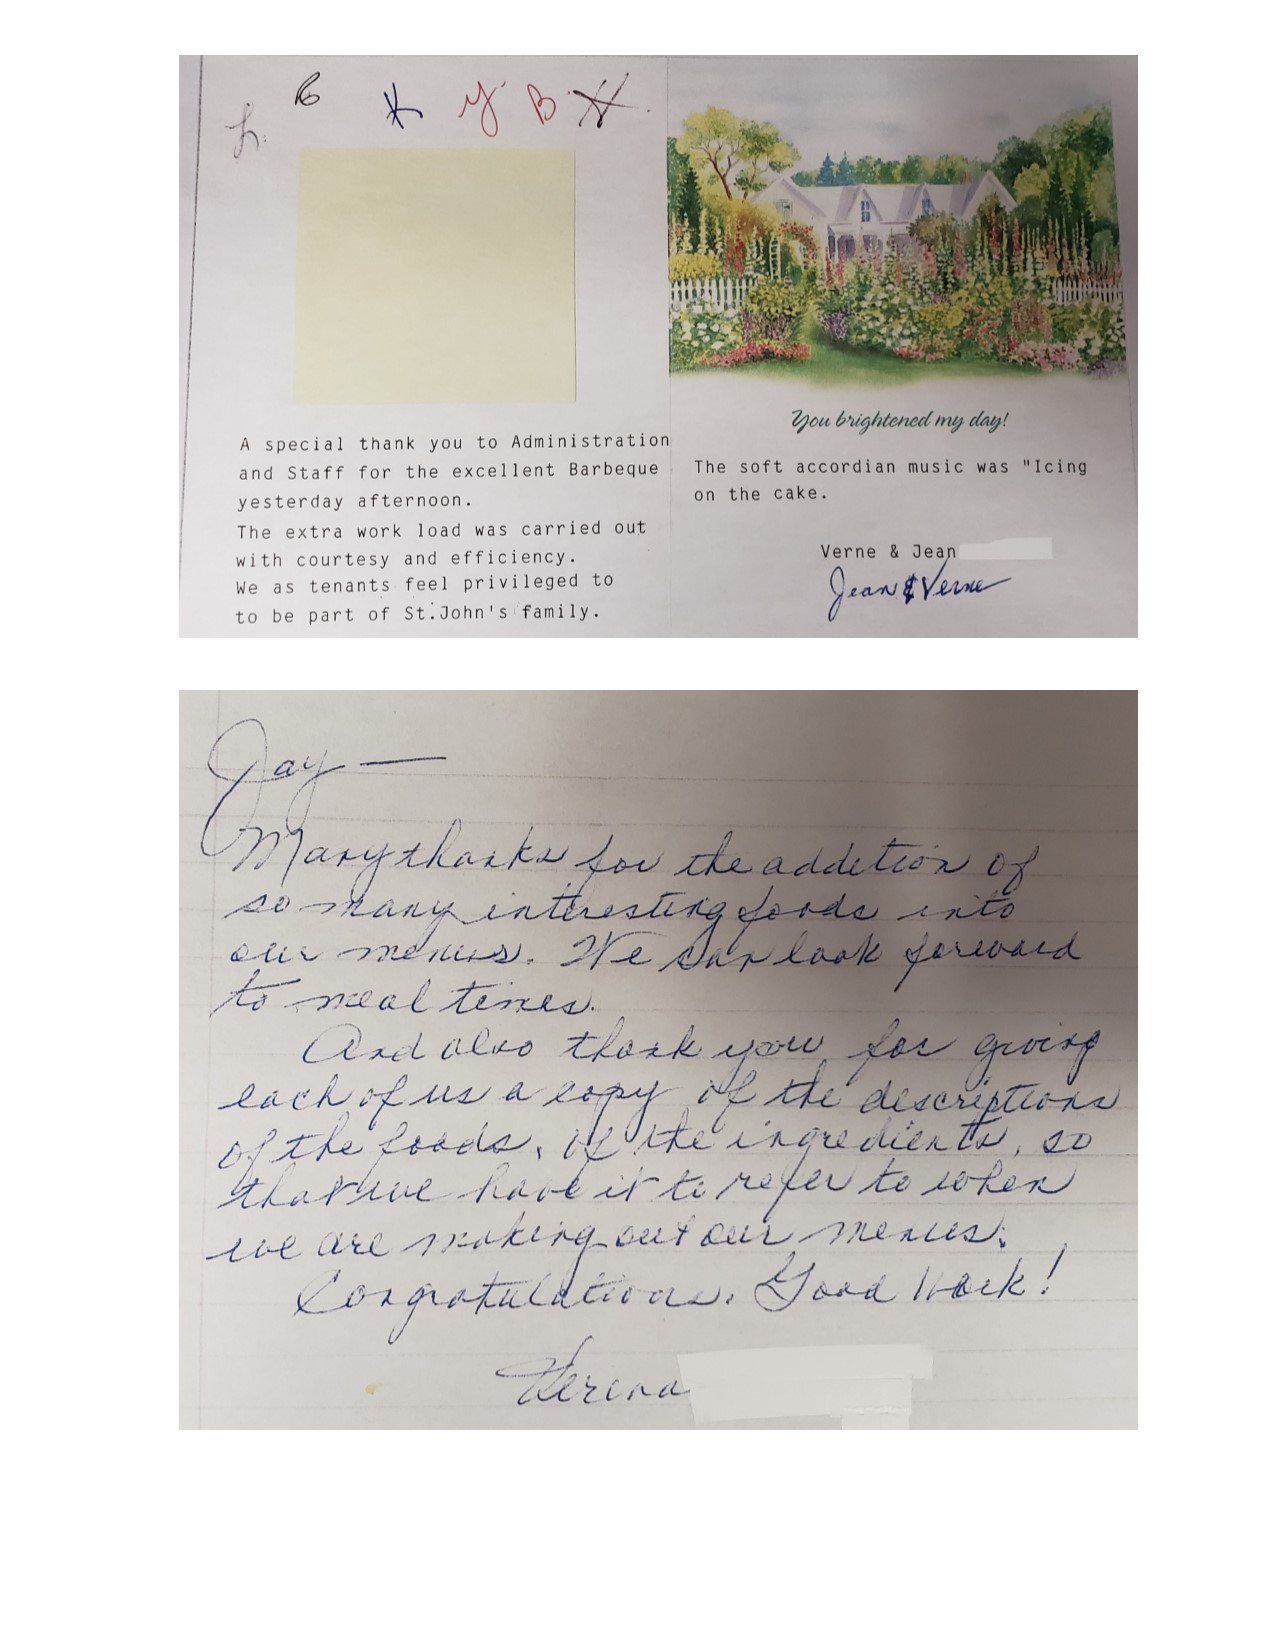 L.
B
K
Y
B
H
A special thank you to Administration
and Staff for the excellent Barbeque
yesterday afternoon.
The extra work load was carried out
with courtesy and efficiency.
We as tenants feel privileged to
to be part of St.John's family.
You brightened my day!
The soft accordian music was "Icing
on the cake.
Verne & Jean
Jean & Verne
Jay —
Many thanks for the addetion of
so many interesting foods into
our menus. We can look forward
to meal times.
And also thank you for giving
each of us a copy of the descriptions
of the foods, of the ingredients, so
that we have it to refer to when
we are making out our menus.
Congratulations. Good Work!